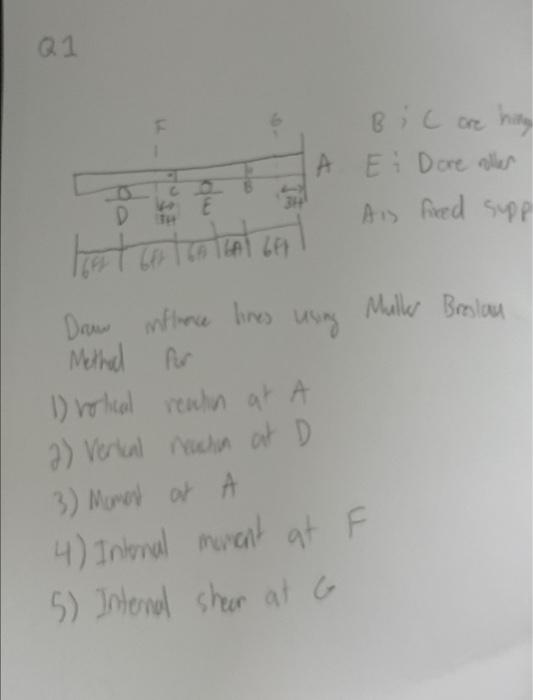 Q1
F G
B ; C are hing
A E ; D are roller
C B
D E 3ft 3ft
A is fixed supp
6ft 6ft 6ft 6ft 6ft
Draw influence lines using Muller Breslau
Method for
1) vertical reaction at A
2) Vertical reaction at D
3) Moment at A
4) Internal moment at F
5) Internal shear at G